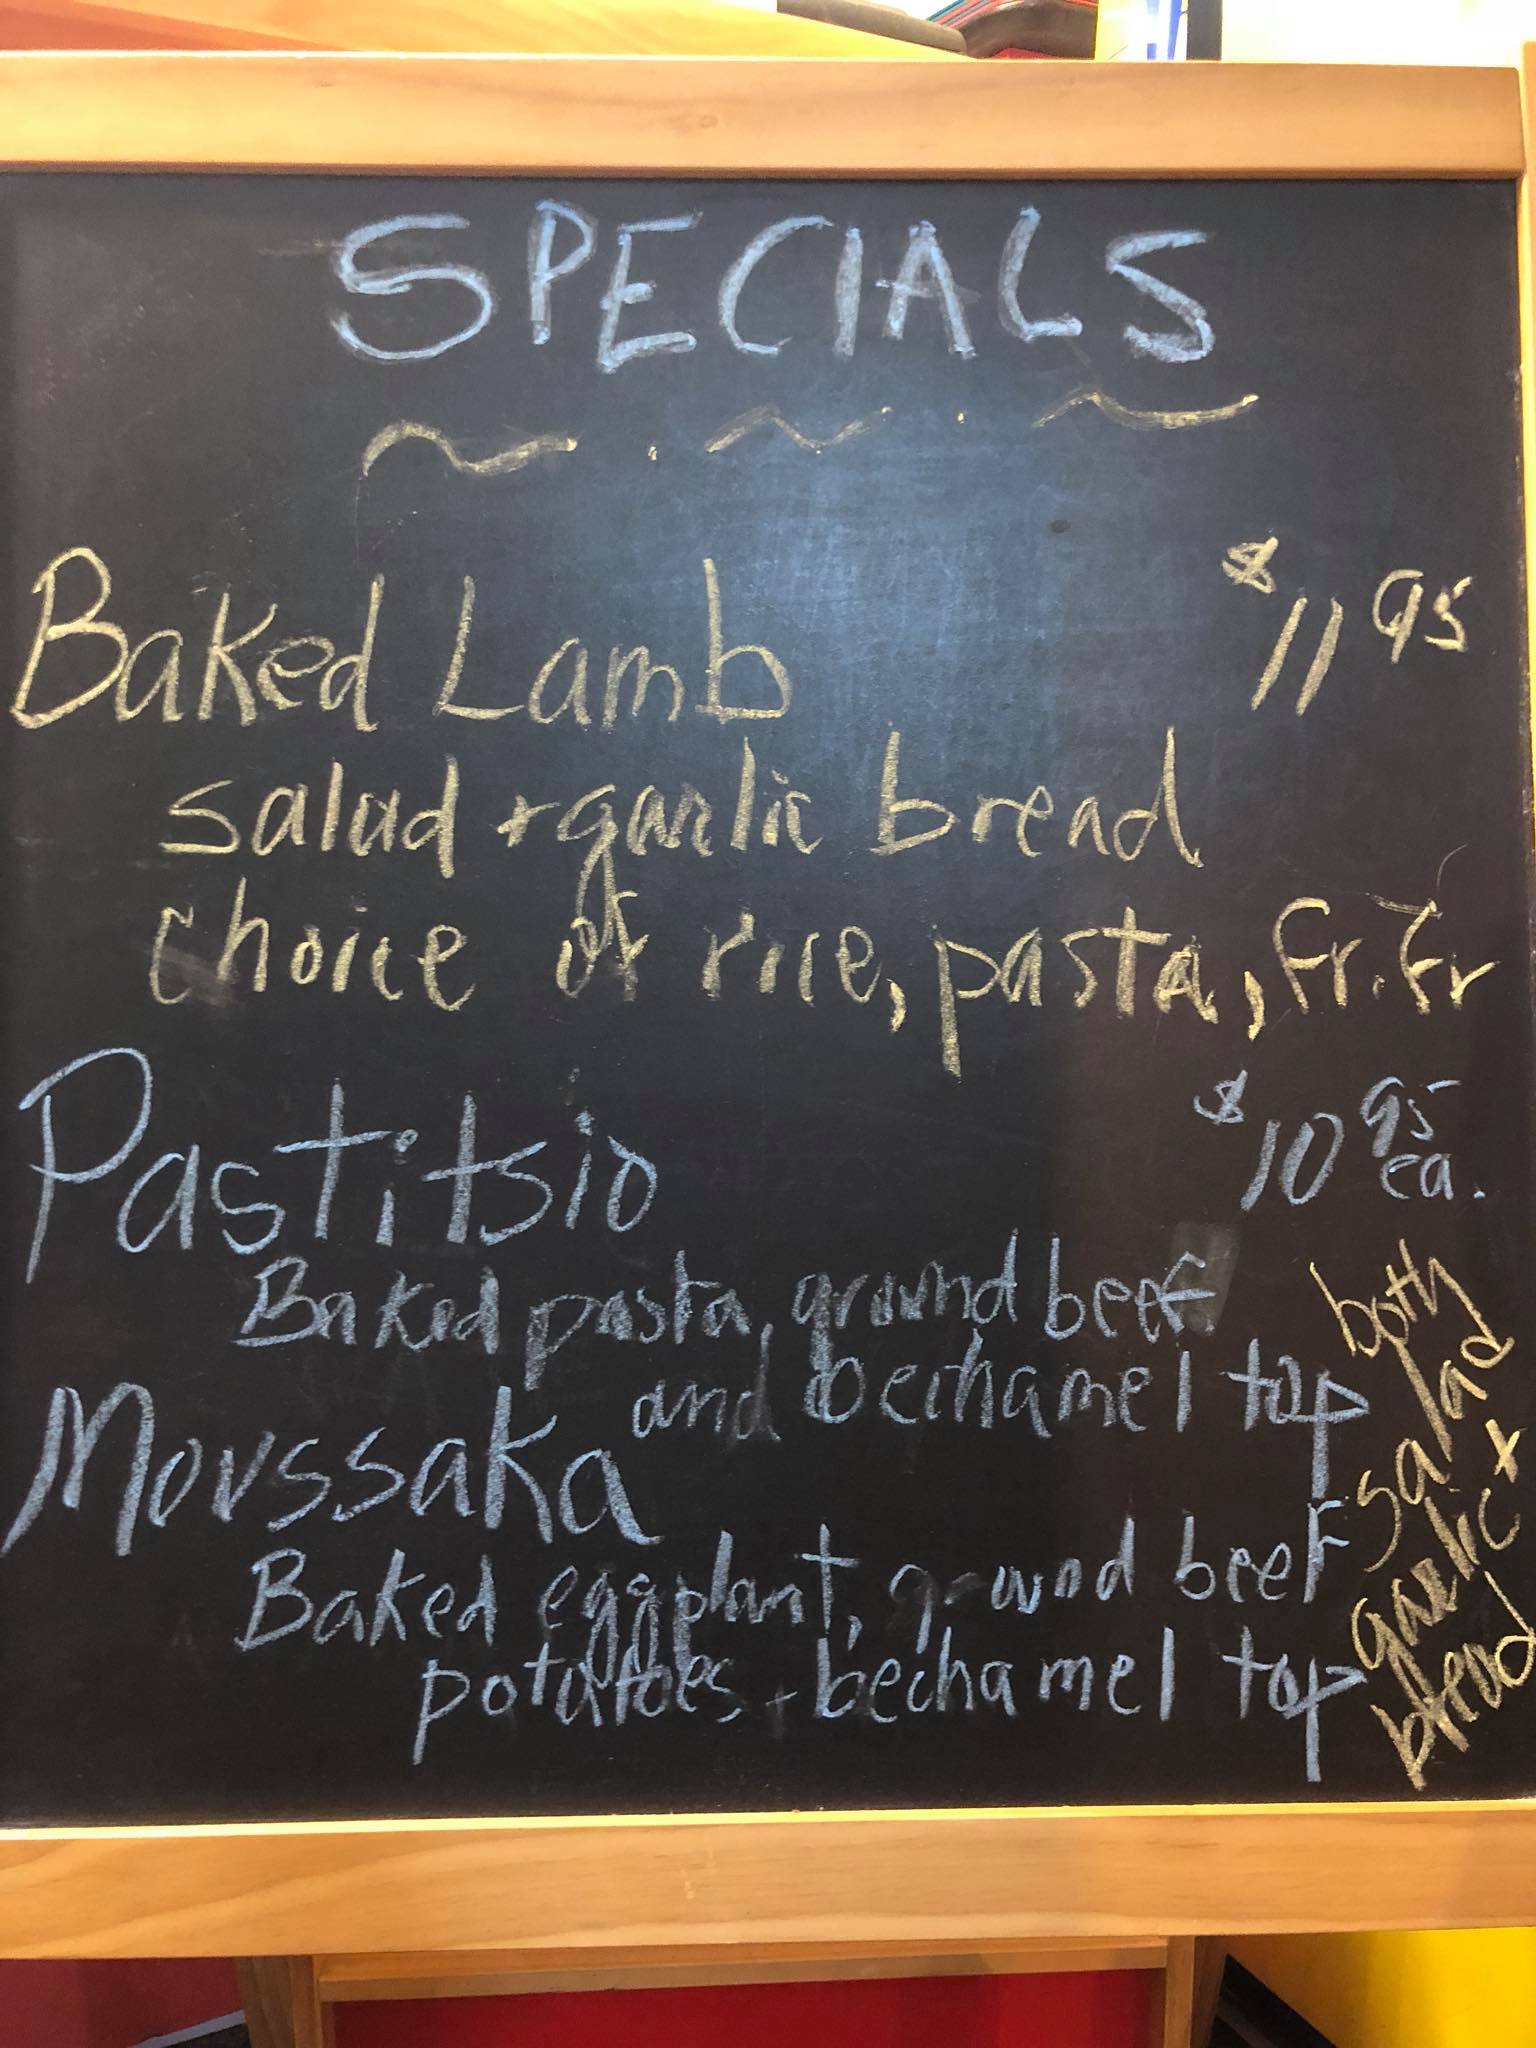 SPECIALS
Baked Lamb $11 95
salad + garlic bread
choice of rice, pasta, Fr. Fr
Pastitsio $10 95 ea.
Baked pasta, ground beef
and bechamel top
Moussaka
Baked eggplant, ground beef
potatoes + bechamel top
both
salad +
garlic
bread